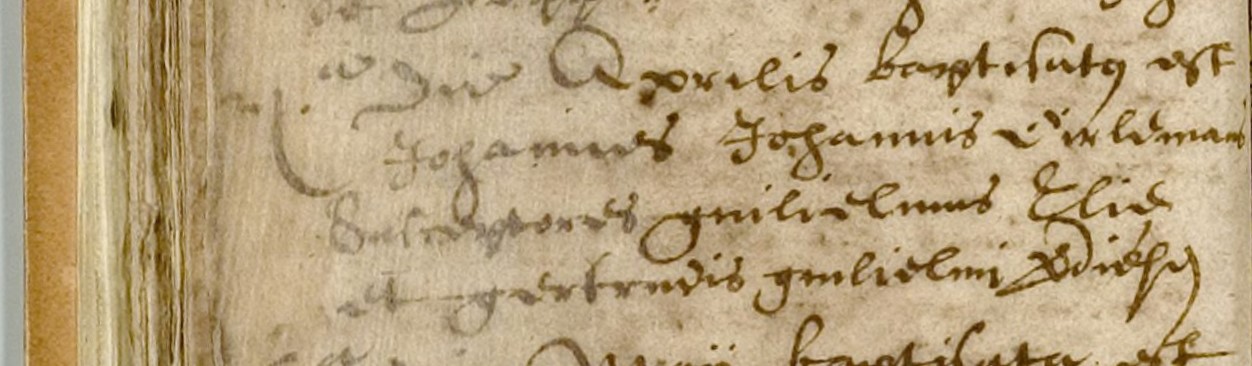 a Die Aprilis baptisatus est
Johannes Johannis
Susceptores guilielmus Elie
et gertrudis guilielmi
Maij baptisata est